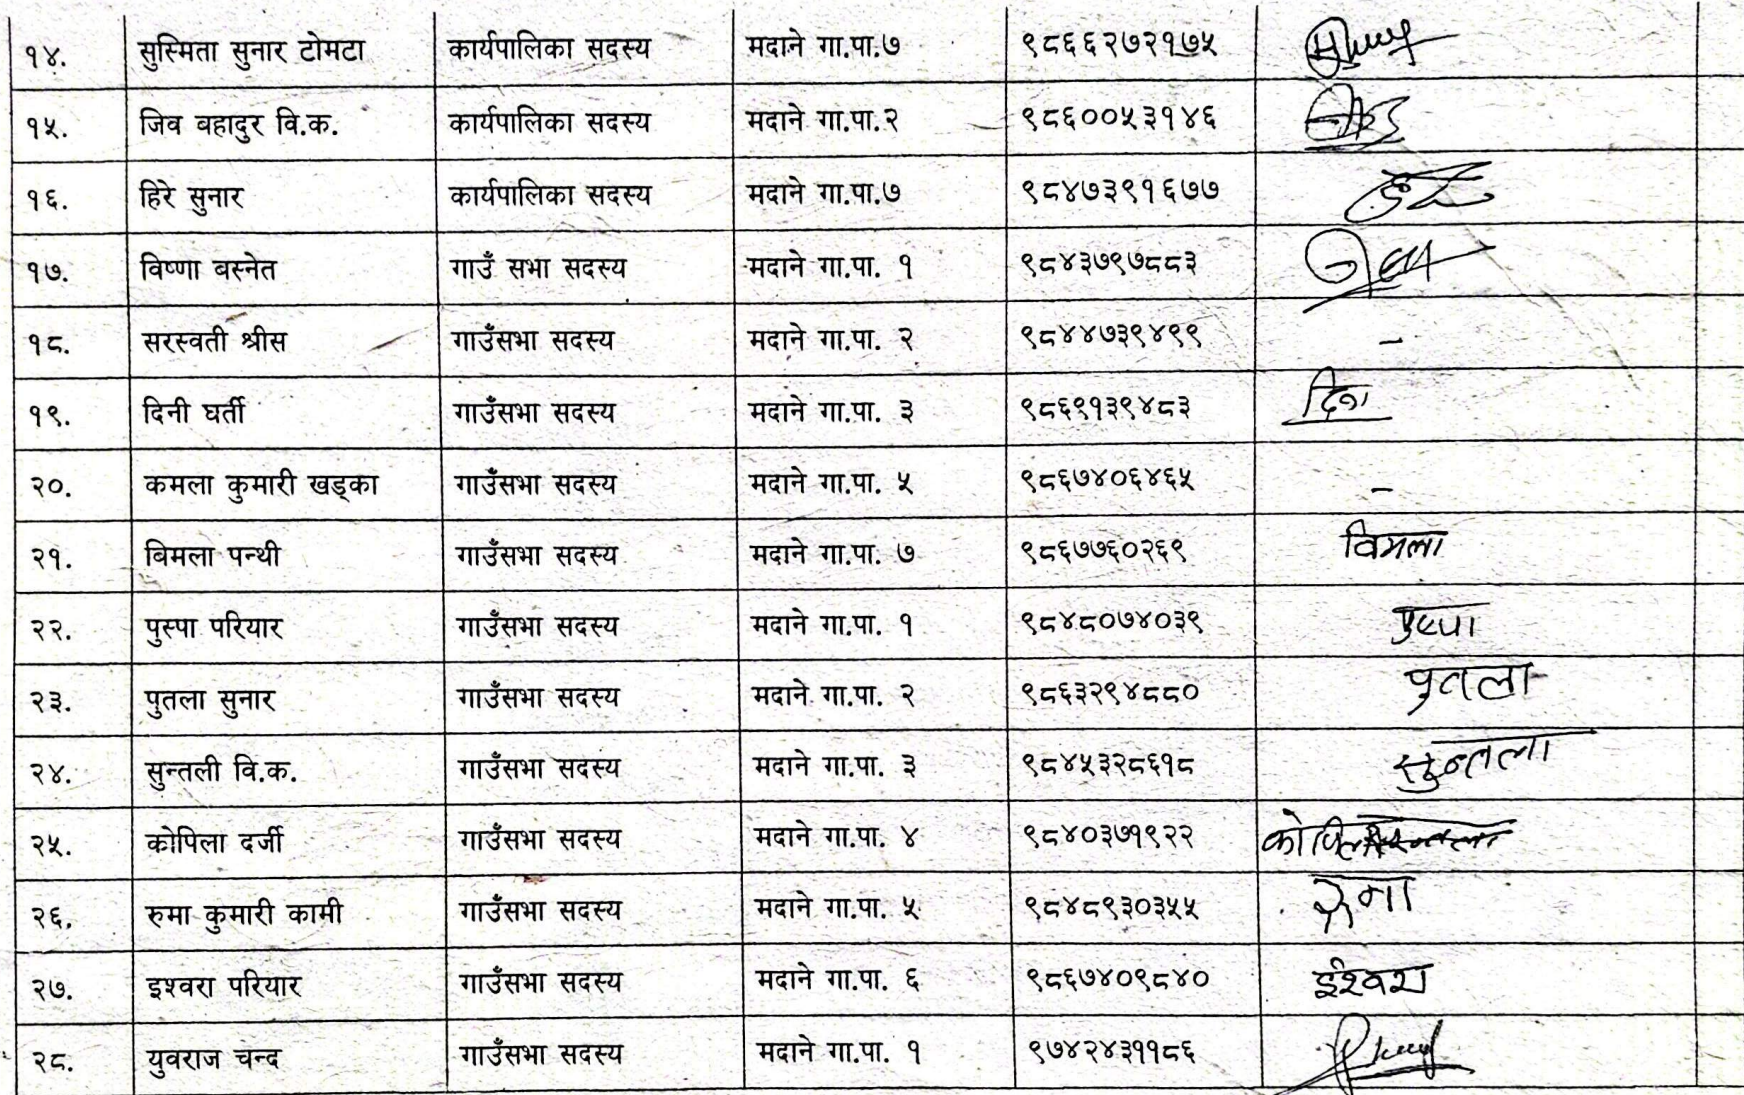 १४. सुस्मिता सुनार टोमटा कार्यपालिका सदस्य मदाने गा.पा.७ ९८६६२७२१७५
१५. जिव बहादुर वि.क. कार्यपालिका सदस्य मदाने गा.पा.२ ९८६००५३१४६
१६. हिरे सुनार कार्यपालिका सदस्य मदाने गा.पा.७ ९८४७३९१६७७
१७. विष्णा बस्नेत गाउँ सभा सदस्य मदाने गा.पा. १ ९८४३७९७८८३
१८. सरस्वती श्रीस गाउँसभा सदस्य मदाने गा.पा. २ ९८४४७३९४९९ -
१९. दिनी घर्ती गाउँसभा सदस्य मदाने गा.पा. ३ ९८६९१३९४८३
२०. कमला कुमारी खड्का गाउँसभा सदस्य मदाने गा.पा. ५ ९८६७४०६४६५ -
२१. बिमला पन्थी गाउँसभा सदस्य मदाने गा.पा. ७ ९८६७७६०२६९ विमला
२२. पुस्पा परियार गाउँसभा सदस्य मदाने गा.पा. १ ९८४८०७४०३९ पुष्पा
२३. पुतला सुनार गाउँसभा सदस्य मदाने गा.पा. २ ९८६३२९४८८० पुतला
२४. सुन्तली वि.क. गाउँसभा सदस्य मदाने गा.पा. ३ ९८४५३२८६१८ सुन्तला
२५. कोपिला दर्जी गाउँसभा सदस्य मदाने गा.पा. ४ ९८४०३७१९२२ कोपिला
२६. रुमा कुमारी कामी गाउँसभा सदस्य मदाने गा.पा. ५ ९८४८९३०३५५
२७. इश्वरा परियार गाउँसभा सदस्य मदाने गा.पा. ६ ९८६७४०९८४० ईश्वरा
२८. युवराज चन्द गाउँसभा सदस्य मदाने गा.पा. १ ९७४२४३११८६